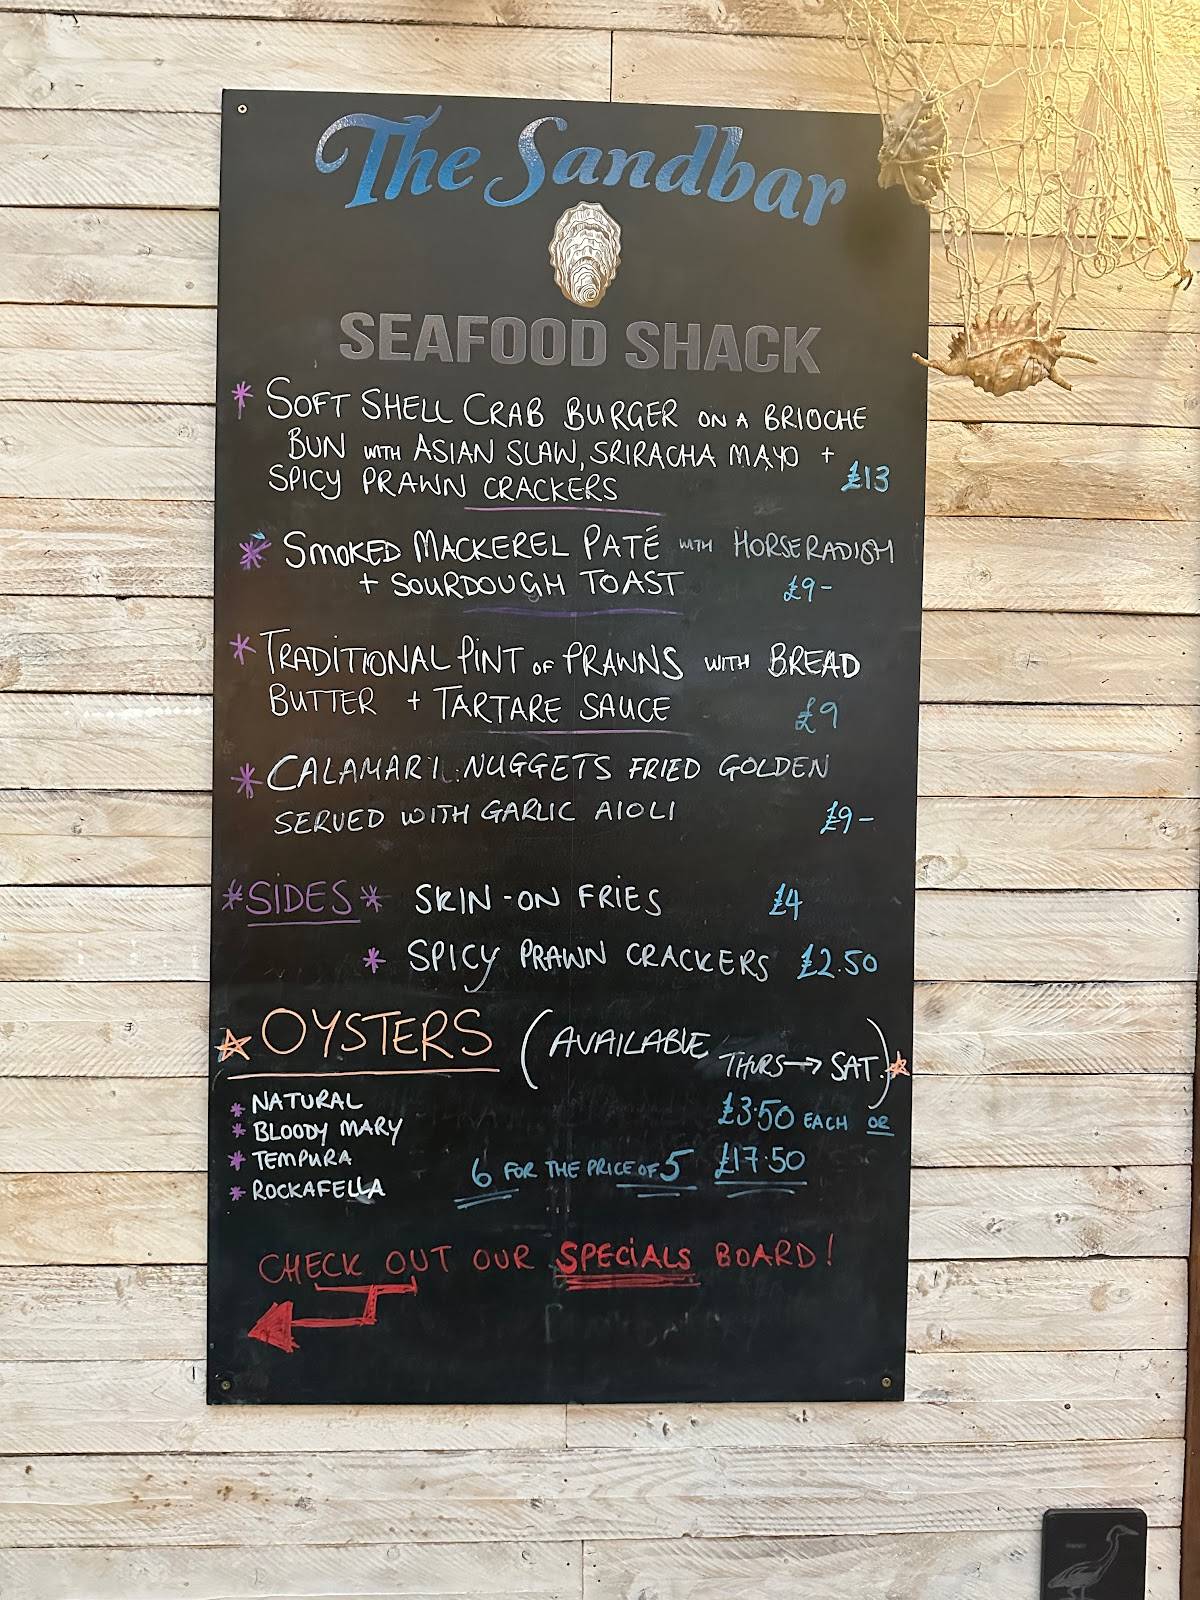 The Sandbar
SEAFOOD SHACK
* SOFT SHELL CRAB BURGER ON A BRIOCHE
BUN WITH ASIAN SLAW, SRIRACHA MAYO +
SPICY PRAWN CRACKERS £13
* SMOKED MACKEREL PATÉ WITH HORSERADISH
+ SOURDOUGH TOAST £9-
* TRADITIONAL PINT OF PRAWNS WITH BREAD
BUTTER + TARTARE SAUCE £9
* CALAMARI NUGGETS FRIED GOLDEN
SERVED WITH GARLIC AIOLI £9-
*SIDES* SKIN-ON FRIES £4
* SPICY PRAWN CRACKERS £2.50
☆ OYSTERS (AVAILABLE THURS → SAT.) ☆
* NATURAL £3.50 EACH OR
* BLOODY MARY
* TEMPURA 6 FOR THE PRICE OF 5 £17.50
* ROCKAFELLA
CHECK OUT OUR SPECIALS BOARD!